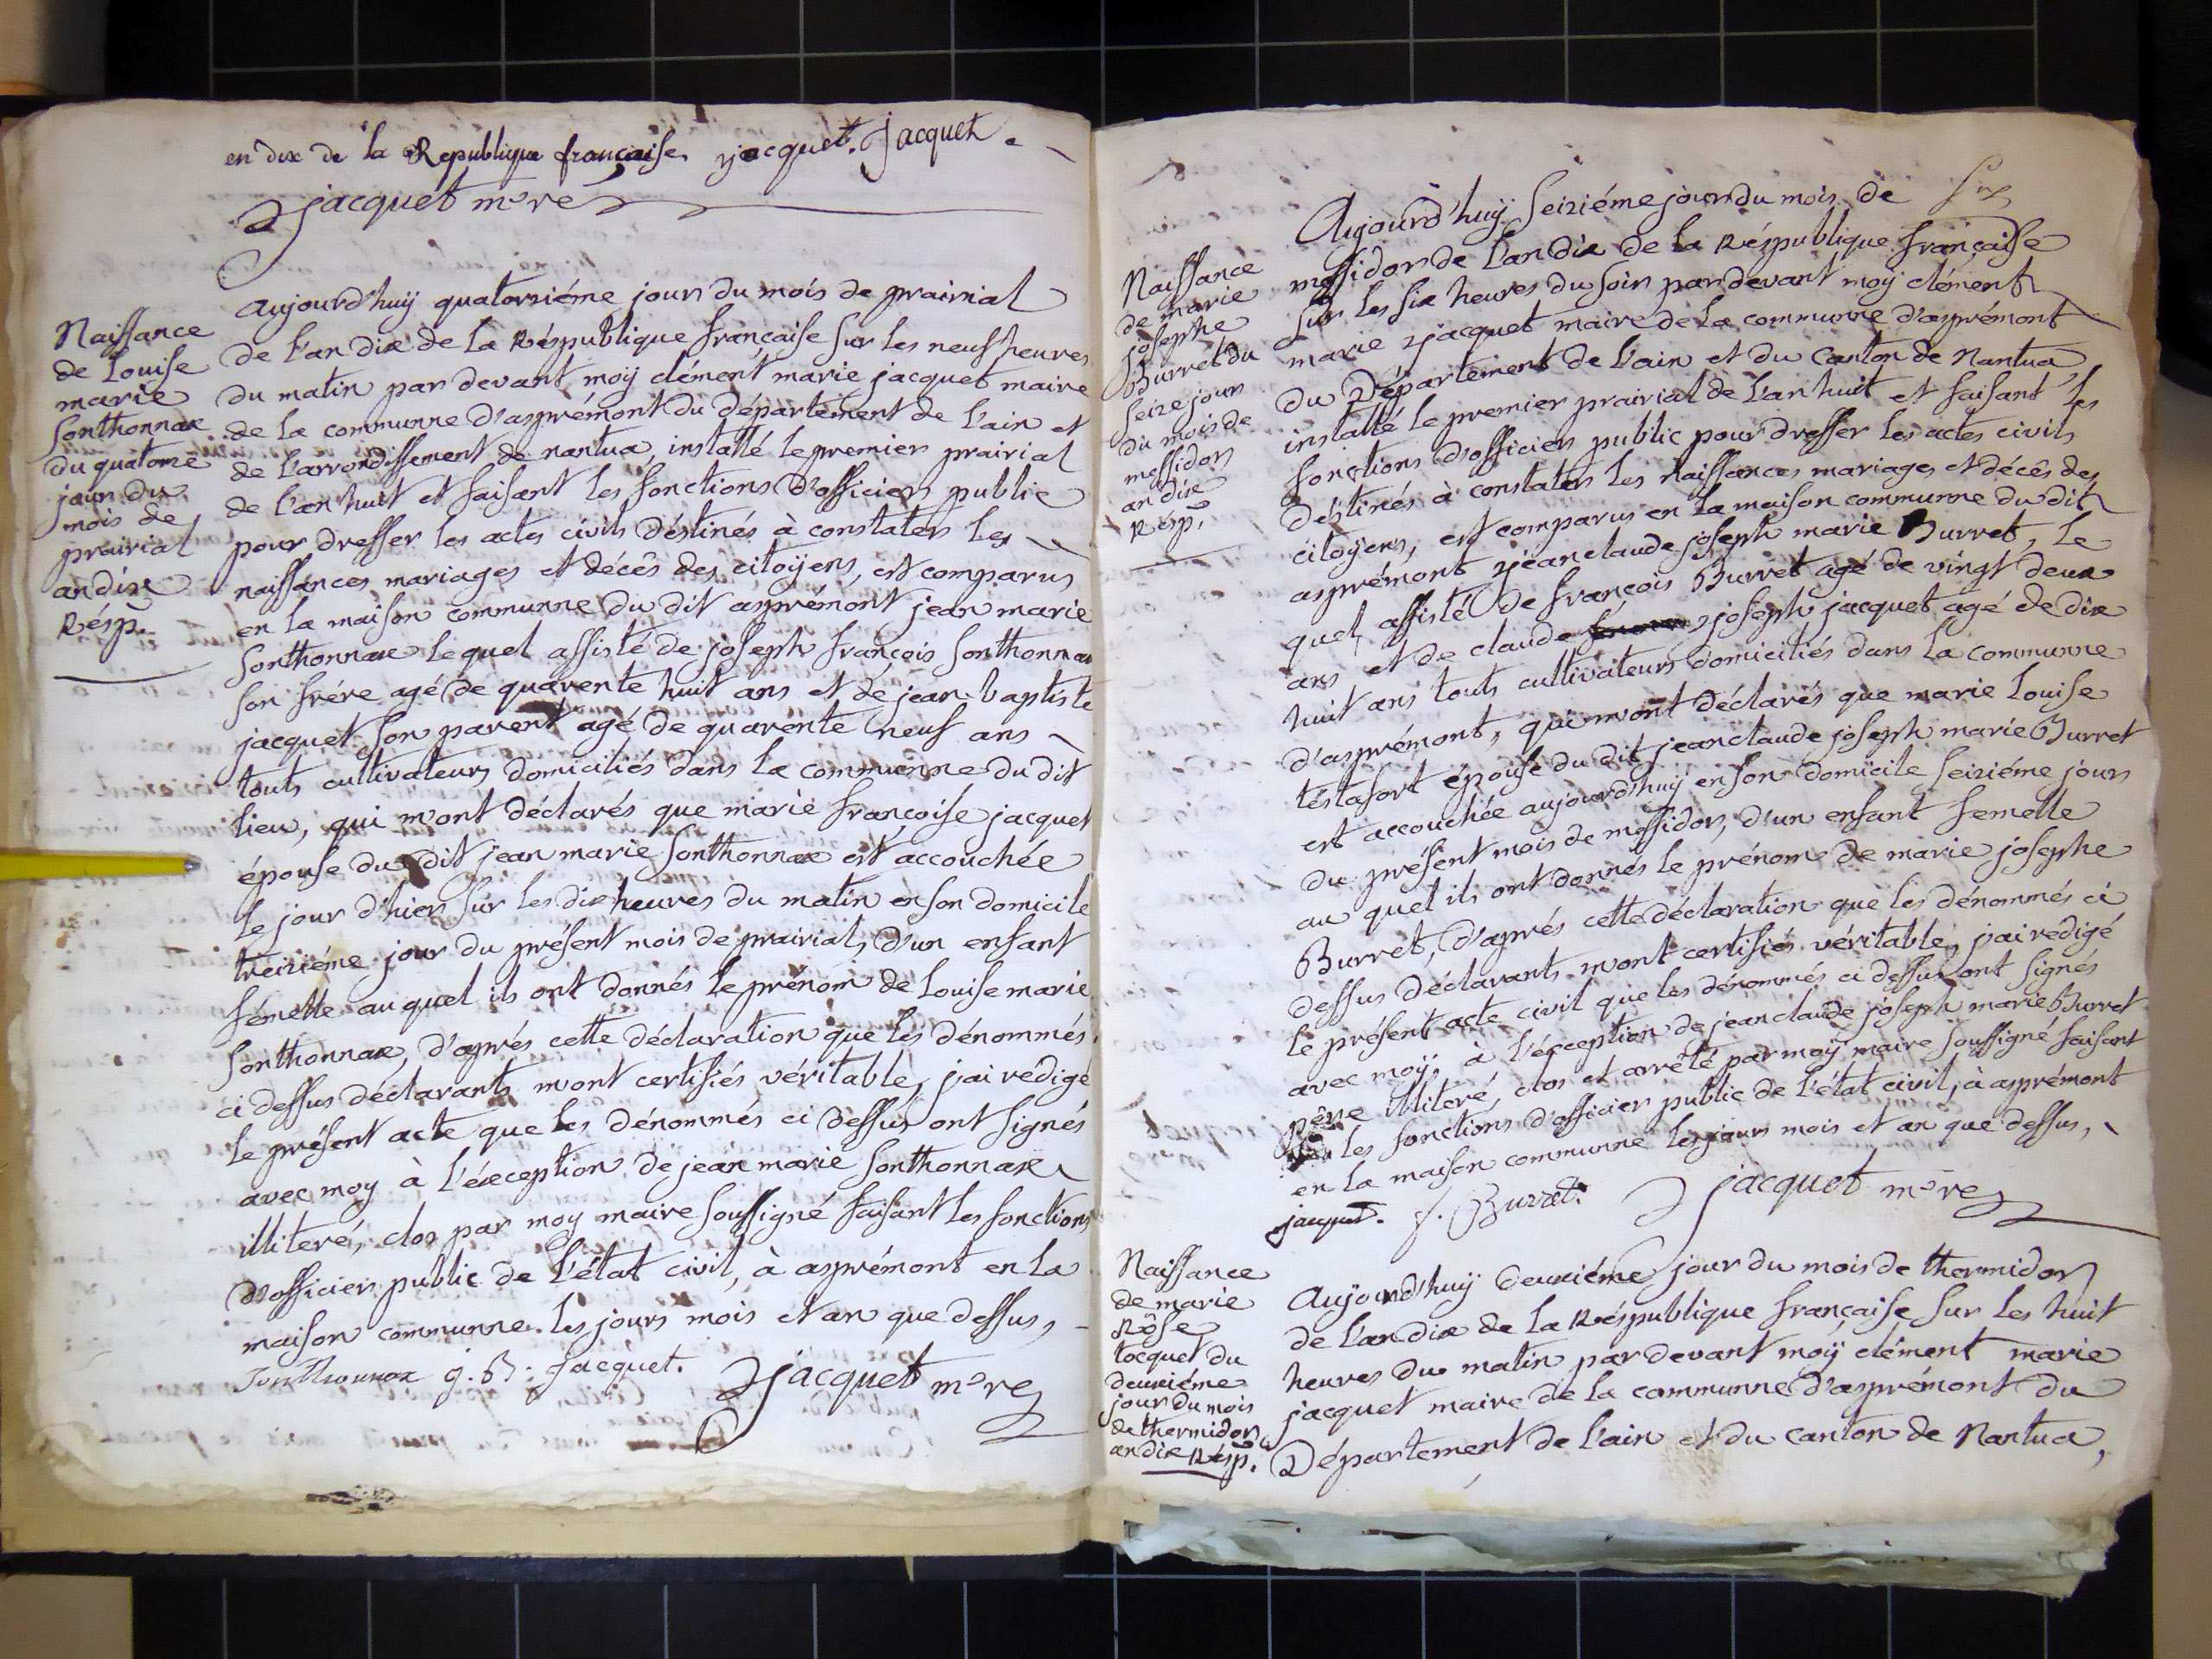 en dix de la Republique française. jacquet. Jacquet.
jacquet mere
Naissance
de Louise
marie
Sonthonnax
du quatorze
jour du
mois de
prairial
an dix
Résp.
aujourd'huÿ quatorziéme jour du mois de prairial
de l'an dix de la Réspublique française sur les neuf heures
du matin par devant moÿ clément marie jacquet maire
de la commune d'asprémont du département de l'ain et
de l'arrondissement de nantua, installé le premier prairial
de l'an huit et faisant les fonctions d'officier public
pour dresser les actes civils déstinés à constater les
naissances mariages et décês des citoÿens, est comparus
en la maison communne du dit asprémont jean marie
Sonthonnax lequel assisté de joseph françois Sonthonnax
son frére agé de quarente huit ans et de jean baptiste
jacquet son parent agé de quarente neuf ans
touts cultivateurs domiciliés dans la communne du dit
lieu, qui m'ont déclarés que marie françoise jacquet
épouse du dit jean marie Sonthonnax est accouchée
le jour d'hier sur les dix heures du matin en son domicile
treiziéme jour du présent mois de prairial, d'un enfant
fémelle au quel ils ont donnés le prénom de Louise marie
Sonthonnax, d'aprés cette déclaration que les dénommés
ci dessus déclarants m'ont certifiés véritable, j'ai redigé
le présent acte que les dénommés ci dessus ont signés
avec moy à l'éxception de jean marie Sonthonnax
illiteré, clos par moy maire soussigné faisant les fonctions
d'officier public de l'état civil, à asprémont en la
maison communne les jours mois et an que dessus,
Sonthonnax j. B: Jacquet. jacquet mere
Naissance
de marie
josephe
Burret du
seize jour
du mois de
messidor
an dix
Résp.
Aujourd'huÿ seiziéme jour du mois de
messidor de l'an dix de la Réspublique française
sur les six heures du soir par devant moÿ clément
marie jacquet maire de la communne d'asprémont
du Département de l'ain et du Canton de Nantua,
installé le premier prairial de l'an huit et faisant les
fonctions d'officier public pour dresser les actes civils
déstinés à constater les naissances mariages et décês des
citoÿens, est comparus en la maison communne du dit
asprémont jean claude joseph marie Burret, le
quel assisté de françois Burret agé de vingt deux
ans et de claude joseph jacquet agé de dix
huit ans touts cultivateurs domiciliés dans la communne
d'asprémont, qui m'ont déclarés que marie Louise
téstafort épouse du dit jean claude joseph marie Burret
est accouchée aujourd'huÿ en son domicile seiziéme jour
du présent mois de messidor, d'un enfant femelle
au quel ils ont donnés le prénom de marie josephe
Burret, d'aprés cette déclaration que les dénommés ci
dessus déclarants m'ont certifiés véritable, j'ai redigé
le présent acte civil que les dénommés ci dessus ont signés
avec moÿ, à l'éxception de jean claude joseph marie Burret
pére illiteré, clos et arrêté par moÿ maire soussigné faisant
les fonctions d'officier public de l'état civil, à asprémont
en la maison communne les jours mois et an que dessus,
jacquet. f. Burret. jacquet mere
Naissance
de marie
Rôse
tocquet du
deuxiéme
jour du mois
de thermidor
an dix Résp.
Aujourd'huÿ deuxiéme jour du mois de thermidor
de l'an dix de la Réspublique française sur les huit
heures du matin par devant moÿ clément marie
jacquet maire de la communne d'asprémont du
Département de l'ain et du canton de Nantua,